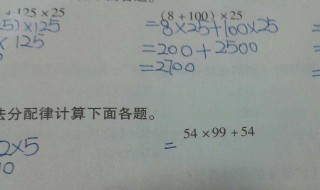 + 125 × 25
(8 + 100) × 25
5) × 125
= 8×25+100×25
× 125
= 200 + 2500
= 2700
法分配律计算下面各题。
54 × 99 + 54
2×5
=